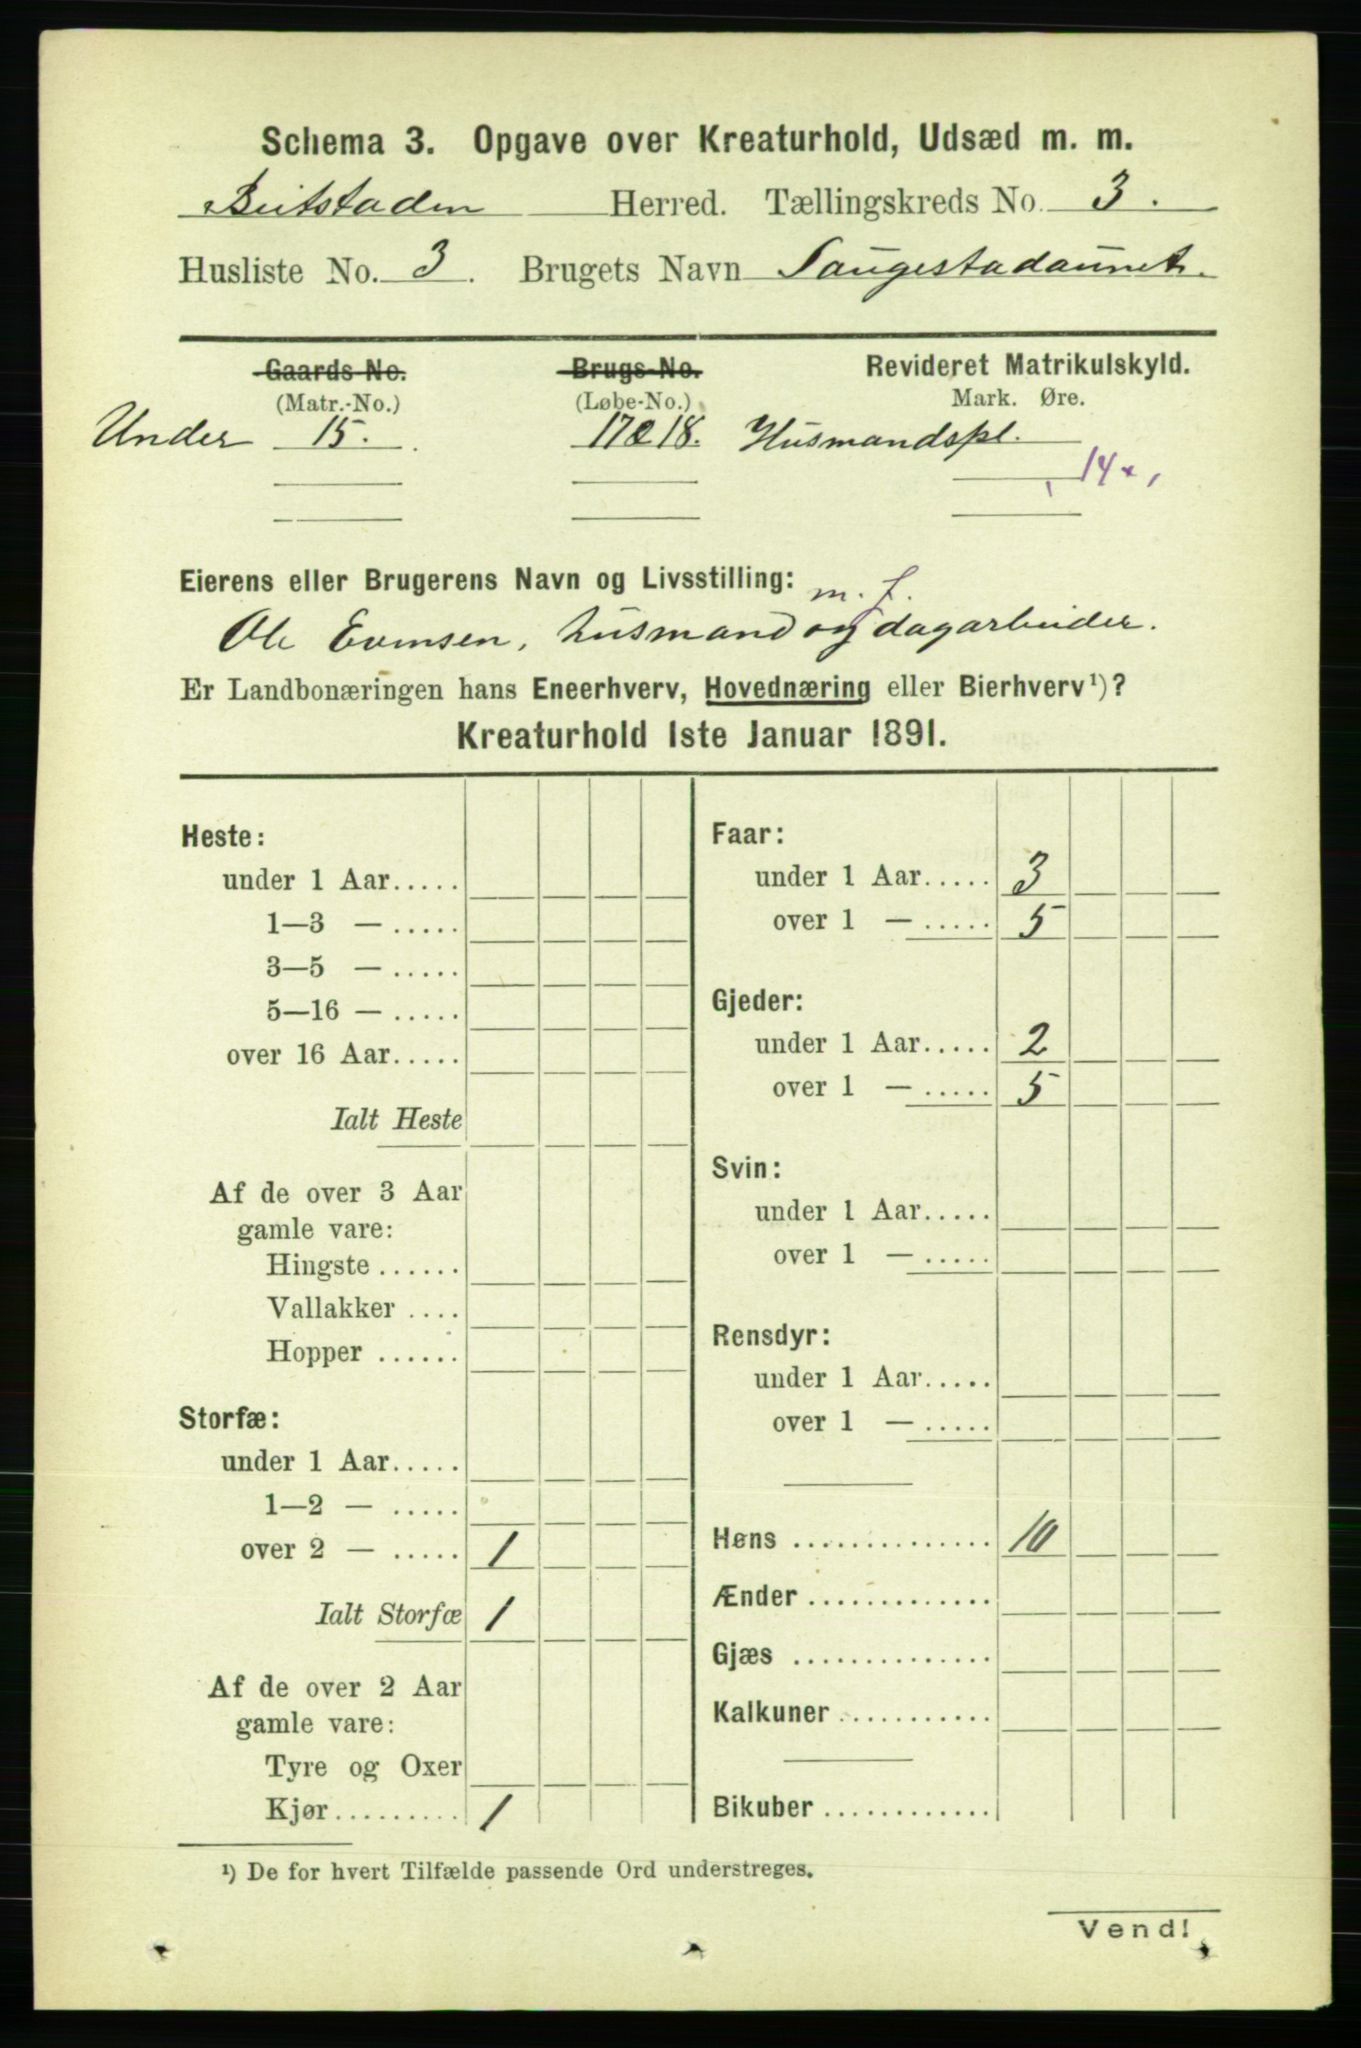 Schema 3. Opgave over Kreaturhold, Udsæd m. m.
Beitstaden Herred. Tællingskreds No. 3.
Husliste No. 3. Brugets Navn Saugestadaunet.
Gaards-No. Brugs-No. Revideret Matrikulskyld.
(Matr.-No.) (Løbe-No.) Mark. Øre.
Under 15. 17 18. Husmandspl.
14
Eierens eller Brugerens Navn og Livsstilling: m. f.
Ole Evensen, husmand og dagarbeider.
Er Landbonæringen hans Eneerhverv, Hovednæring eller Bierhverv¹)?
Kreaturhold 1ste Januar 1891.
Heste:
under 1 Aar.....
1—3 — .....
3—5 — .....
5—16 — .....
over 16 Aar.....
Ialt Heste
Af de over 3 Aar
gamle vare:
Hingste ......
Vallakker ....
Hopper ......
Storfæ:
under 1 Aar.....
1—2 — .....
over 2 — ..... 1
Ialt Storfæ 1
Af de over 2 Aar
gamle vare:
Tyre og Oxer
Kjør......... 1
Faar:
under 1 Aar..... 3
over 1 — ..... 5
Gjeder:
under 1 Aar..... 2
over 1 — ..... 5
Svin:
under 1 Aar.....
over 1 — .....
Rensdyr:
under 1 Aar.....
over 1 — .....
Høns .............. 10
Ænder .............
Gjæs ..............
Kalkuner ...........
Bikuber .............
¹) De for hvert Tilfælde passende Ord understreges.
Vend!